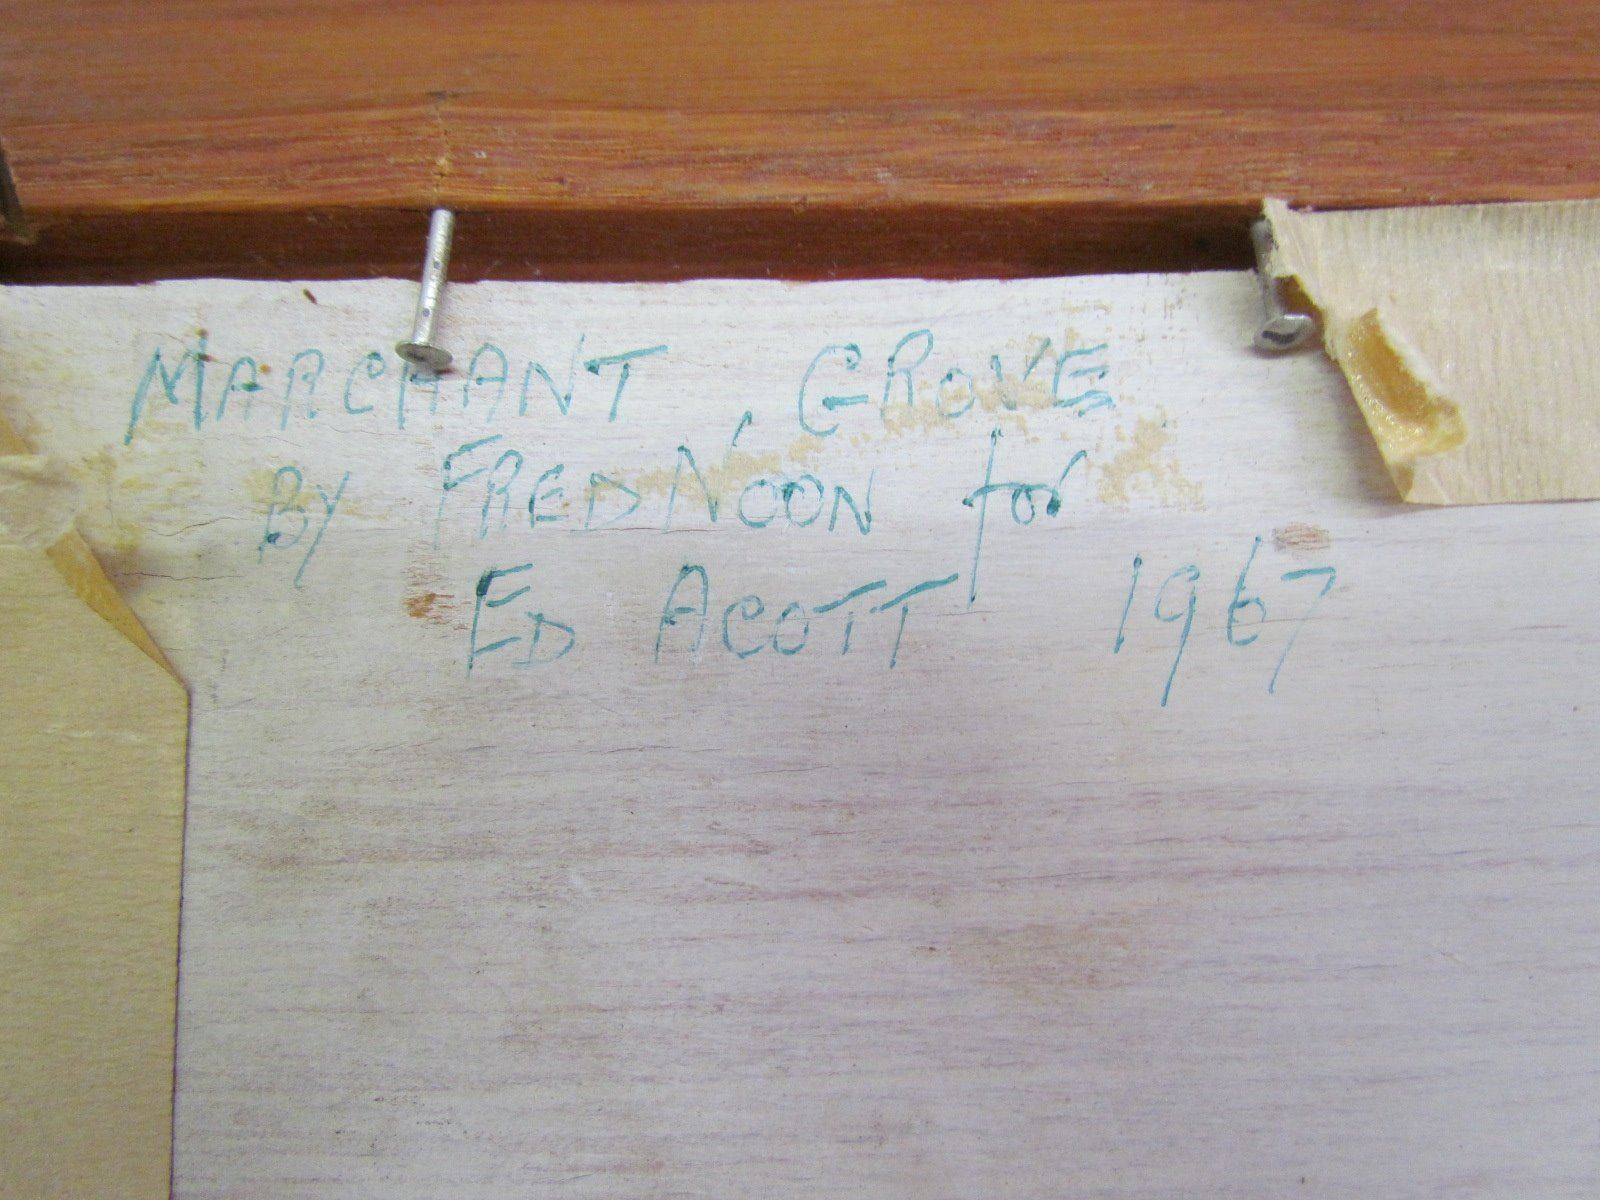 MARCHANT GROVE
BY FRED NOON for
ED ACOTT 1967